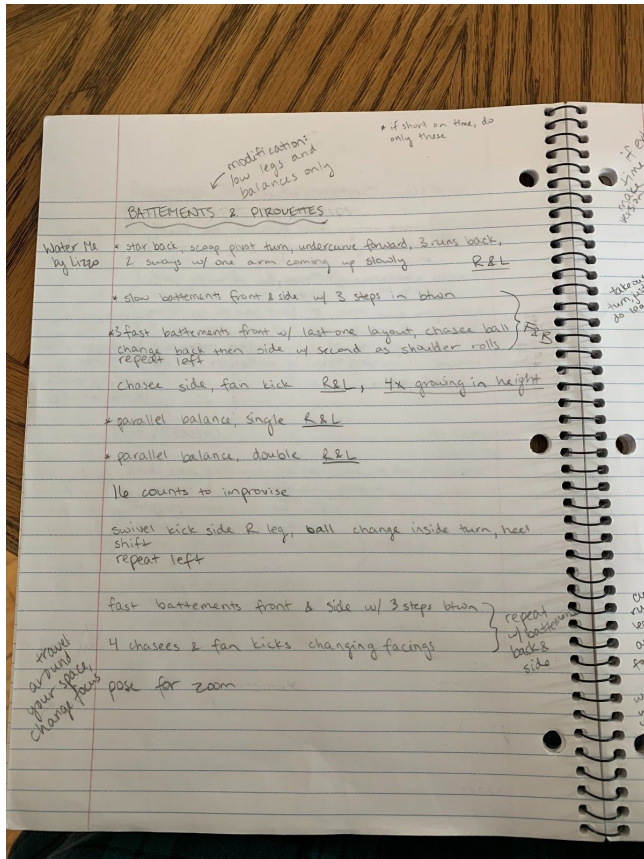 * if short on time, do
only these
modification:
low legs and
balances only
BATTEMENTS & PIROUETTES
Water Me
by Lizzo
* star back, scoop pivot turn, undercurve forward, 3 runs back,
2 sways w/ one arm coming up slowly R&L
* slow battements front & side w/ 3 steps in btwn
* 3 fast battements front w/ last one layout, chasee ball
change back then side w/ second as shoulder rolls
repeat left
F&B
chasee side, fan kick R&L, 4x growing in height
* parallel balance, single R&L
* parallel balance, double R&L
16 counts to improvise
swivel kick side R leg, ball change inside turn, heel
shift
repeat left
fast battements front & side w/ 3 steps btwn
4 chasees & fan kicks changing facings
repeat
w/ battement
back &
side
travel
around
your space,
change focus
pose for zoom